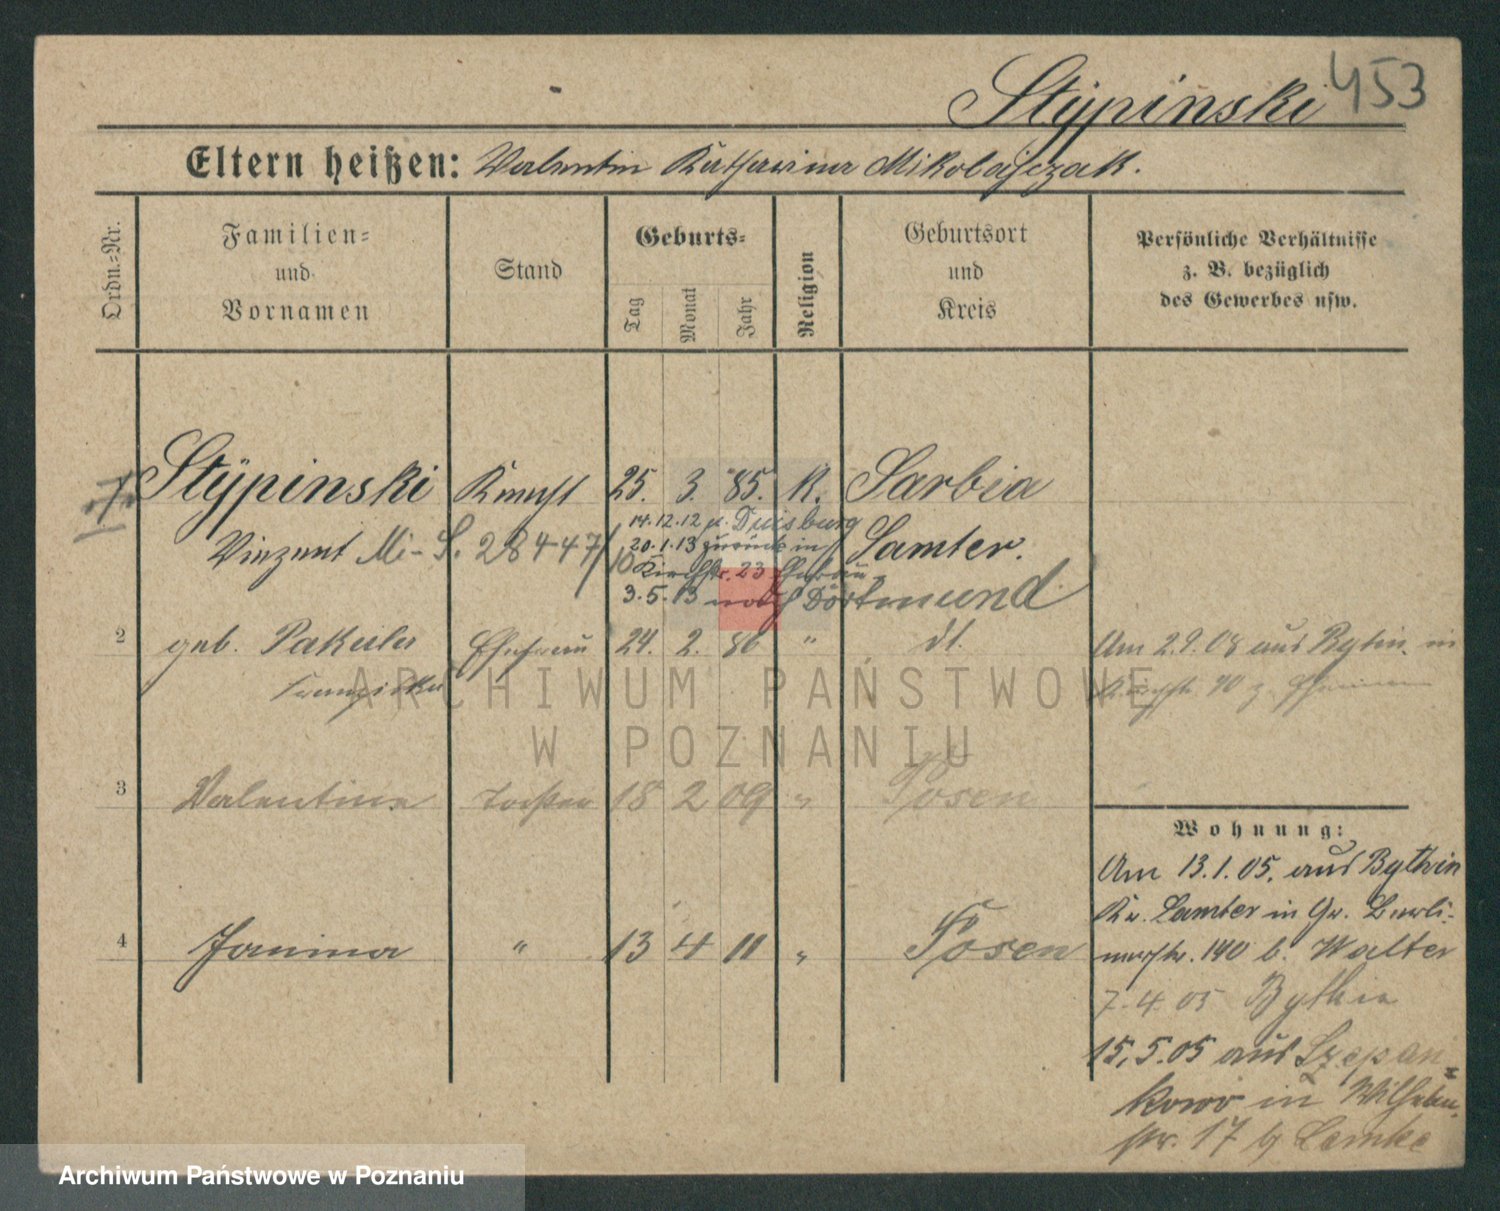 Stÿpinski 453
Eltern heißen: Valentin Katharina Mikolajczak.
Ordn.-Nr.
Familien-
und
Vornamen
Stand
Geburts-
Tag
Monat
Jahr
Religion
Geburtsort
und
Kreis
Persönliche Verhältnisse
z. B. bezüglich
des Gewerbes usw.
1 Stÿpinski Knecht 25. 3. 85. K. Sarbia
14.12.12 Duisburg
Vinzent Mi-S. 28447/10 20.1.13 zurück in Samter.
23
3.5.13 nach Dortmund
2 geb. Pakula Ehefrau 24. 2. 86 " dt. Am 2.9.08 aus Bytin in
Franziska
3 Valentina Tochter 18 2 09 " Posen
Wohnung:
Am 13.1.05. aus Bythin
Kr. Samter in Gr. Berli-
4 Janina " 13 4 11 " Posen
nerstr. 190 b. Walter
7.4.05 Bythin
15.5.05 aus Szepan-
kowo in Wilhelm
str. 17 b Lemke
ARCHIWUM PAŃSTWOWE
W POZNANIU
Archiwum Państwowe w Poznaniu